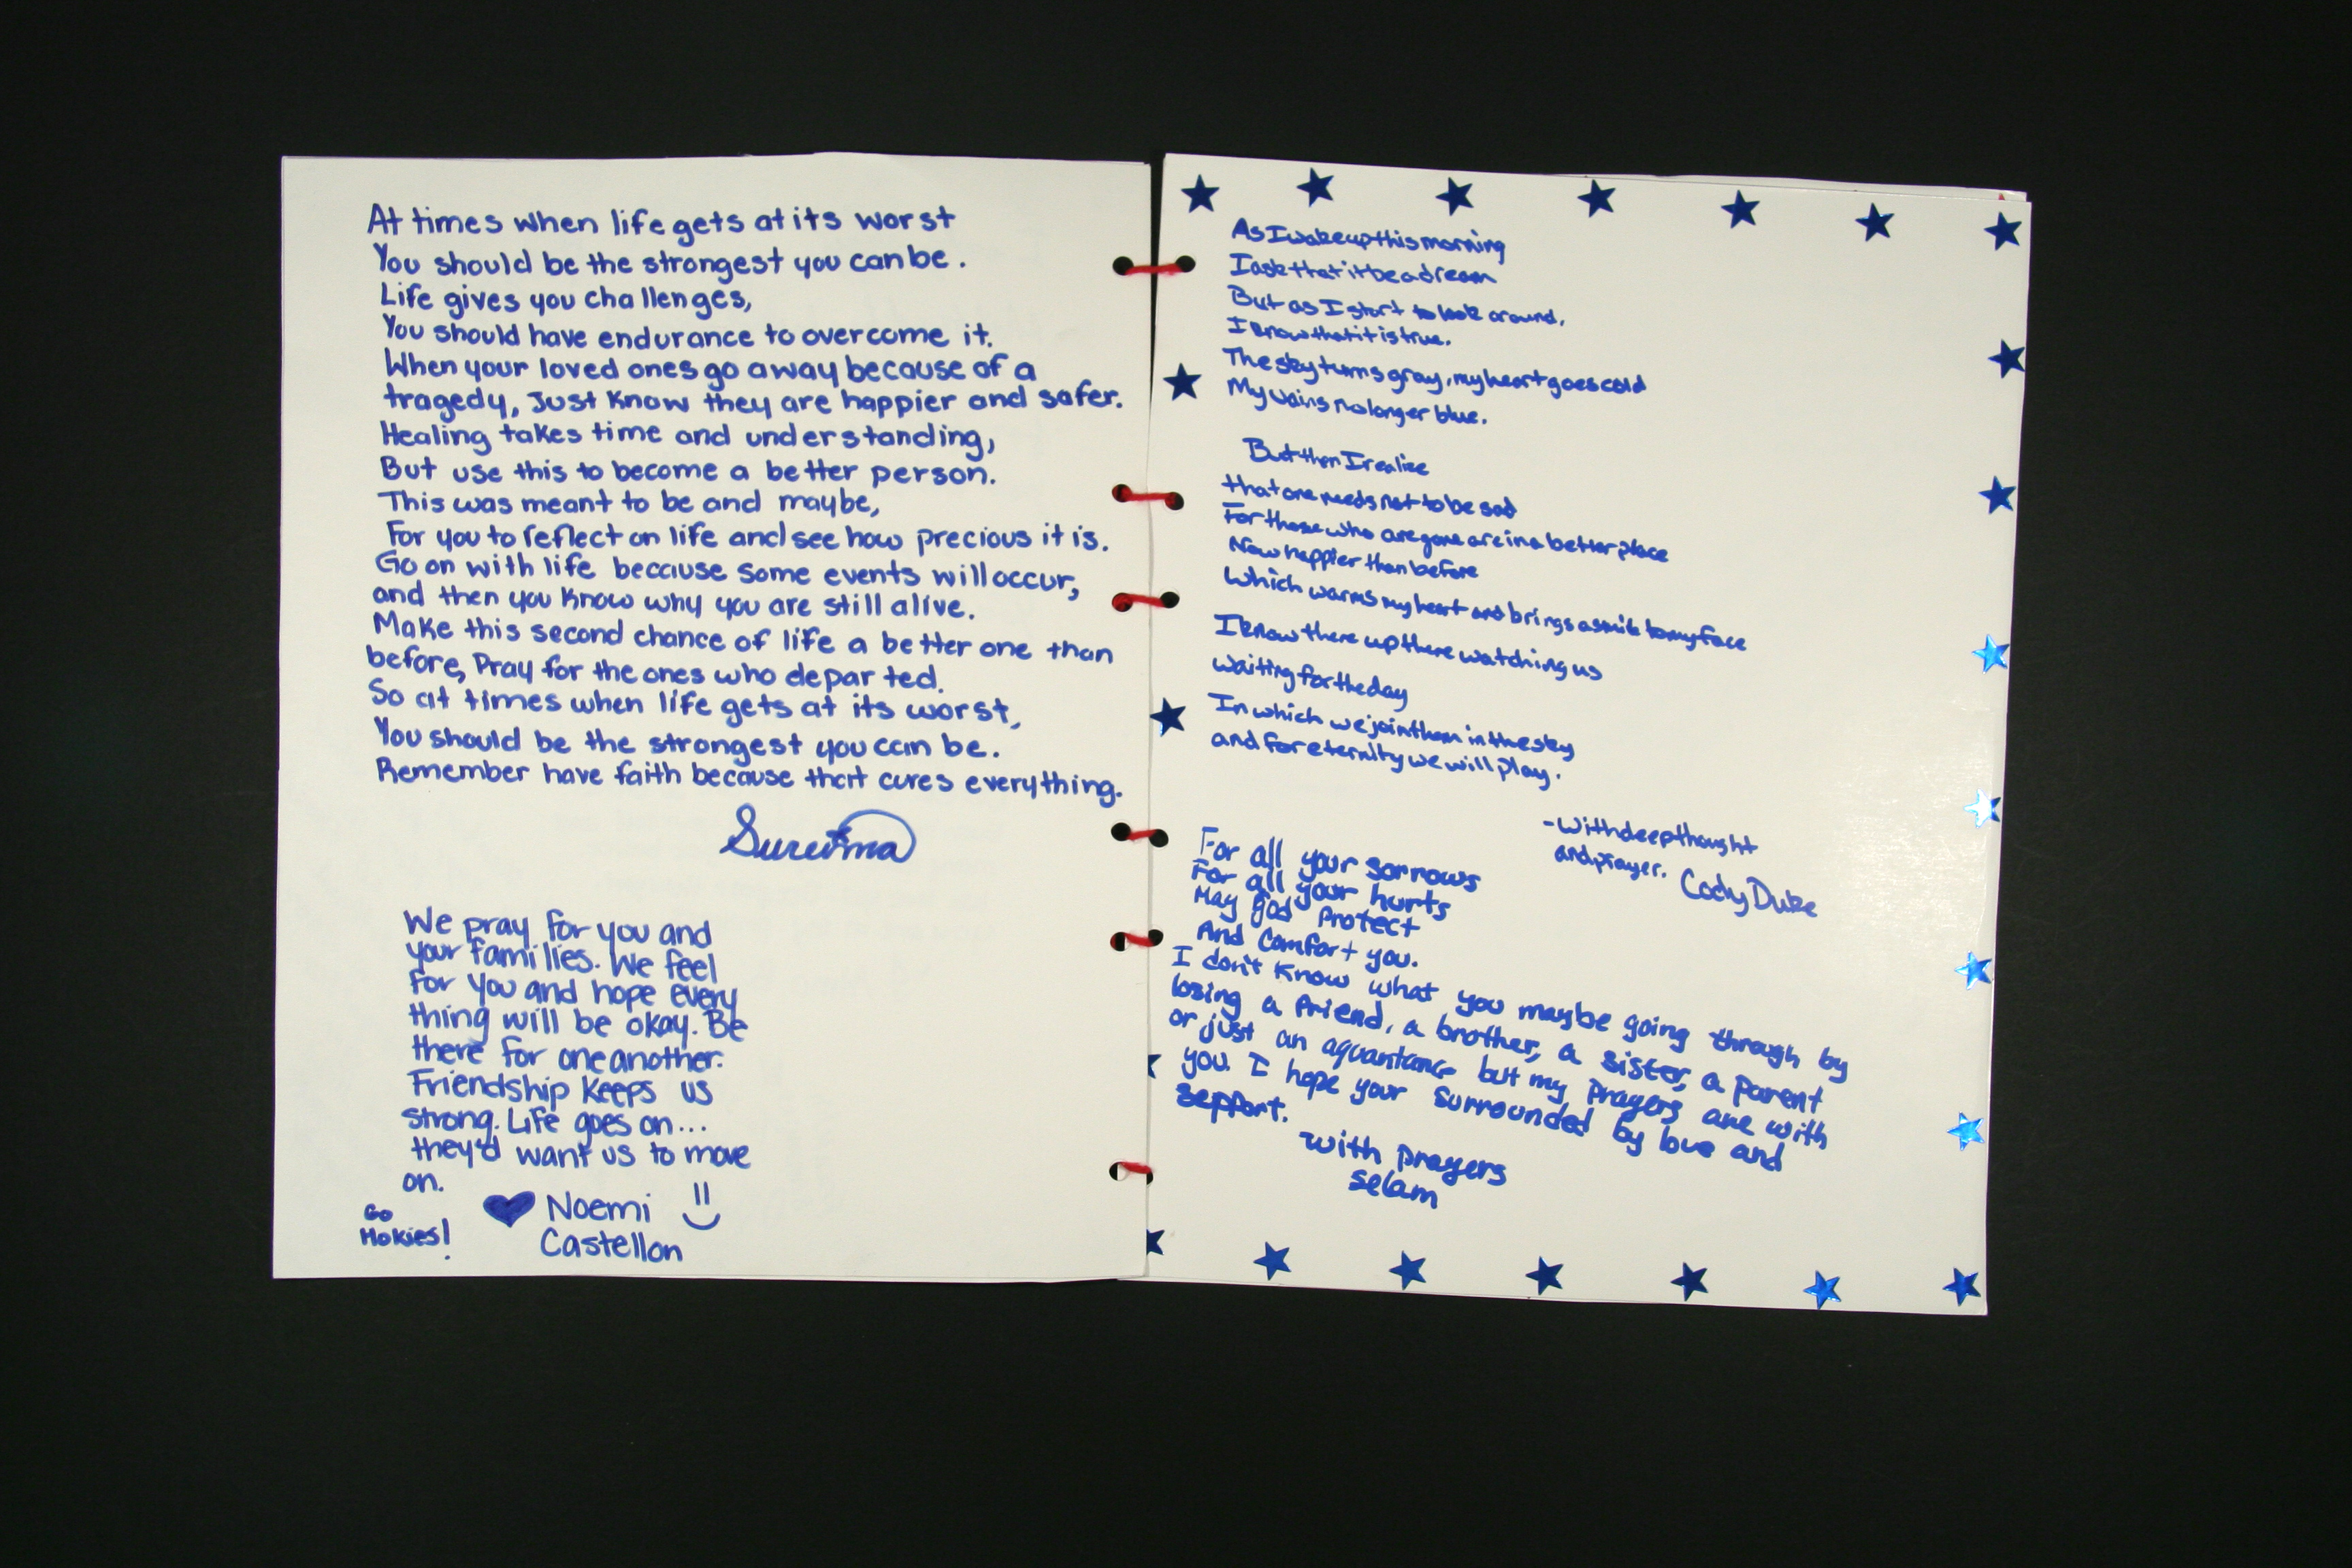 At times when life gets at its worst
You should be the strongest you can be.
Life gives you challenges,
You should have endurance to overcome it.
When your loved ones go away because of a
tragedy, Just Know they are happier and safer.
Healing takes time and understanding,
But use this to become a better person.
This was meant to be and maybe,
For you to reflect on life and see how precious it is.
Go on with life because some events will occur,
and then you Know why you are still alive.
Make this second chance of life a better one than
before, Pray for the ones who departed.
So at times when life gets at its worst,
You should be the strongest you can be.
Remember have faith because that cures everything.
We pray for you and
your families. We feel
for you and hope every
thing will be okay. Be
there for one another.
Friendship Keeps us
strong. Life goes on...
they'd want us to move
on.
Go
Hokies!
Noemi
Castellon
As I wake up this morning
I ask that it be a dream
But as I start to look around,
I know that it is true.
The sky turns gray, my heart goes cold
My vains no longer blue.
But then I realize
that one needs not to be sad
For those who are gone are in a better place
Now happier than before
Which warms my heart and brings a smile to my face
I know there up there watching us
waiting for the day
In which we join them in the sky
and for eternity we will play.
-With deep thought
and prayer. Cody Duke
For all your sorrows
For all your hurts
May god Protect
And Comfort you.
I don't know what you maybe going through by
losing a friend, a brother, a sister, a parent
or just an aquantance but my Prayers are with
you. I hope your surrounded by love and
sepport.
with prayers
selam